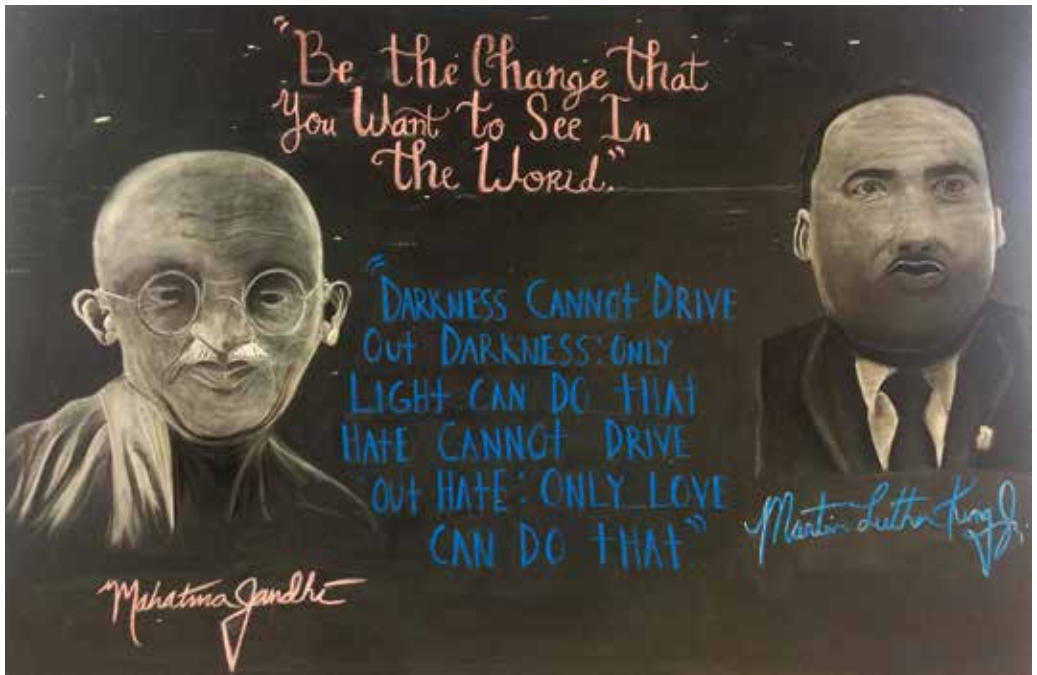 "Be the Change that
You Want to See In
the World."
"DARKNESS CANNOT DRIVE
OUT DARKNESS: ONLY
LIGHT CAN DO THAT
HATE CANNOT DRIVE
OUT HATE: ONLY LOVE
CAN DO THAT"
Martin Luther King Jr.
Mahatma Gandhi